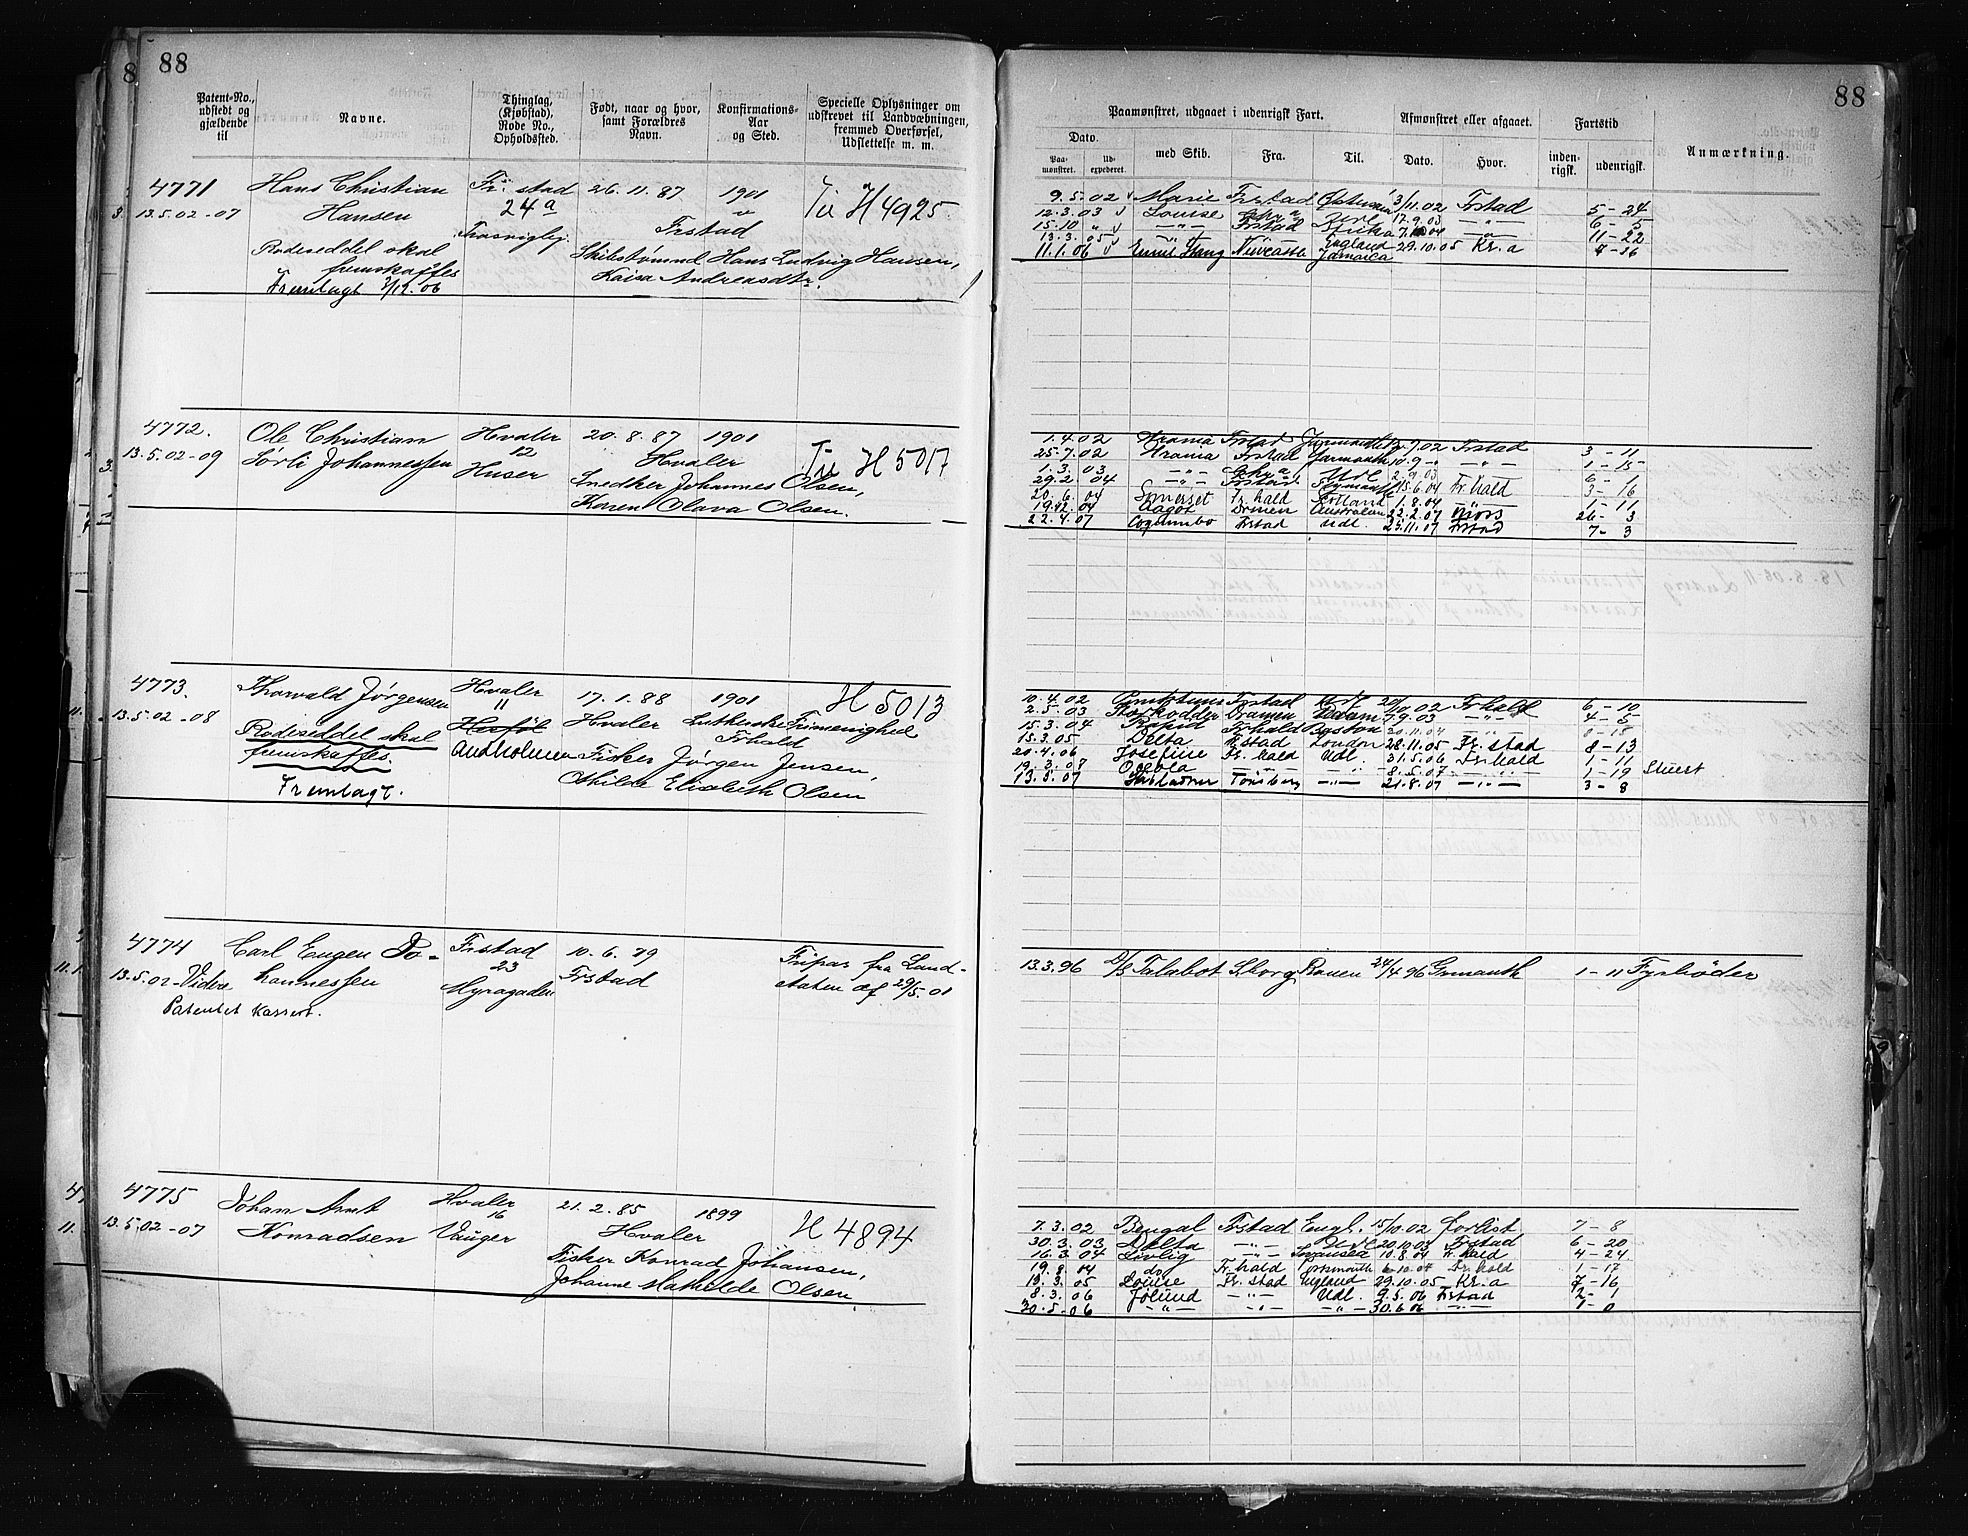 88
Patent-No., udstedt og gjældende til
Navne.
Thinglag, (Kjøbstad), Rode No., Opholdssted.
Født, naar og hvor, samt Forældres Navn.
Konfirmations-Aar og Sted.
Specielle Oplysninger om udskrevet til Landværnsningen, fremmed Overførsel, Udslettelse m. m.
4771 Hans Christian Fr. stad 26. 11. 87 1901 Til H 4925
13.5.02-07 Hansen 24a
Trosvigby Frstad
Rodeseddel skal Skibstømmd Hans Ludvig Hansen,
fremskaffes Kaisa Andreasdtr.
Fremlagt 3/12.06
4772. Ole Christian Hvaler 20. 8. 87 1901 Til H 5017
13.5.02-09 Sørli Johannessen 12 Hvaler
Huser Snedker Johannes Olsen,
Karen Olava Olsen.
4773. Thorvald Jørgensen Hvaler 17. 1. 88 1901 H 5013
13.5.02-08 11 Hvaler Lutherske Frimenighed
Rodeseddel skal Frhald
fremskaffes. Andholmen Fisker Jørgen Jensen,
Othilde Elisabeth Olsen
Fremlagt.
4774 Carl Eugen Jo- Frstad 10. 6. 79 Fripas fra Land-
13.5.02-Videre hannessen 23 Frstad staten af 29/5. 01
Myragaden
Patentet kassert.
4775 Johan Arnt Hvaler 21. 2. 85 1899 H 4894
13.5.02-07 Konradsen 16 Hvaler
Vauger Fisker Konrad Johansen,
Johanne Mathilde Olsen
88
Paamønstret, udgaaet i udenrigsk Fart.
Afmønstret eller afgaaet.
Fartstid
Anmærkning.
Dato.
Paa-mønstret.
Ud-expederet.
med Skib.
Fra.
Til.
Dato.
Hvor.
inden-rigsk.
udenrigsk.
9.5.02 Marie Frstad 3/11.02 Frstad 5-24
12.3.03 Louise 17.9.03 -"- 6-5
15.10 " Frstad Afrika -"- 11-22
13.3.05 -"- England 29.10.05 Kr.a 7-16
11.1.06 Jamaica
1.4.02 Frstad 02 Frstad 3-11
25.7.02 Frstad Yarmouth 10.9-"- -"- 1-15
1.3.03 -"- 03 6-
29.2 04 -"- Frstad 15.6.04 Fr.hald 3-16
20.6.04 Somerset Fr.hald 1.8.04 1-11
19.12.04 Aagot Drmen Australien 22.2.07 26-3
22.4.07 Frstad Udl. 25.11.07 Frstad 7-3
10.4.02 Frstad 02 Frhald 6-10
2.5.03 Storkodder Dramen 7.9.03 -"- 4-5
15.3.04 Rapid Frhald Boston 20.11.04 -"- 8-15
15.3.05 Delta Frstad London 28.11.05 Fr.stad 8-13
20.4.06 Josefine Fr.hald Udl. 31.5.06 Fr.hald 1-11
19.3.07 -"- -"- 8.5.07 -"- 1-19 Stuert
13.5.07 Tønsberg -"- 21.8.07 -"- 3-8
13.3.96 D/S Talabot Sborg Rouen 24/4 96 Grmouth 1-11 Fyrbøder
7.3.02 Bengal Frstad Engl. 15/10.02 7-8
30.3.03 Delta -"- 20.10.03 Frstad 6-20
16.3.04 Livlig -"- Swansea 10.8.04 Fr.hald 4-24
19.8.04 do Fr.hald Portsmouth 6.10.04 Fr.hald 1-17
13.3.05 Louise Fr.stad England 29.10.05 Kr.a 7-16
8.3.06 Jølund -"- Udl. 9.5.06 Frstad 2-1
30.5.06 -"- -"- -"- 30.6.06 -"- 1-0